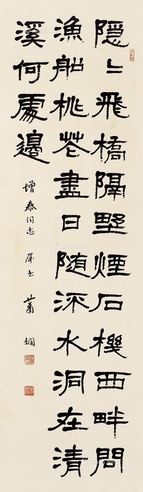 隱〻飛橋隔野煙石機西畔問
漁船桃花盡日随流水洞在清
溪何處邊
增泰同志 屬書 蕭嫻